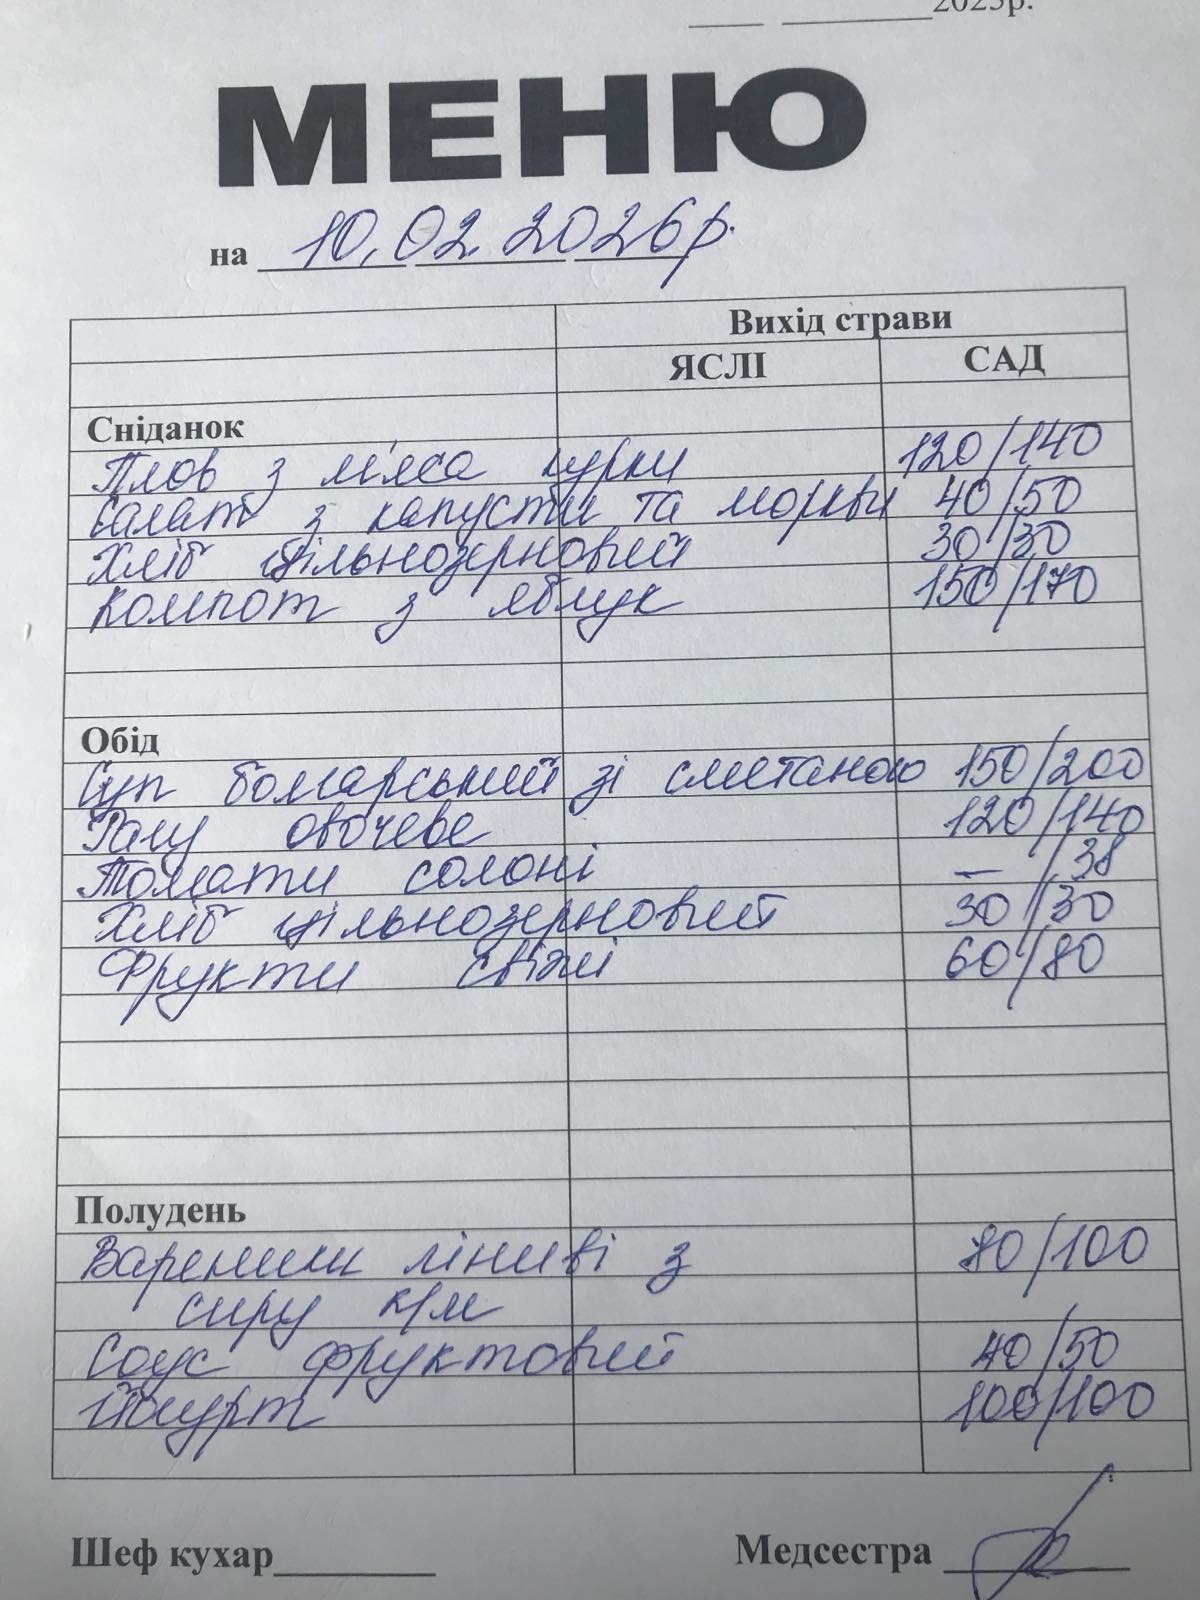 2025р.
МЕНЮ
на 10.02.2026р.
Вихід страви
ЯСЛІ САД
Сніданок
Плов з м'яса курки 120/140
Салат з капусти та моркви 40/50
Хліб цільнозерновий 30/30
Компот з яблук 150/170
Обід
Суп болгарський зі сметаною 150/200
Рагу овочеве 120/140
Томати солоні —/38
Хліб цільнозерновий 30/30
Фрукти свіжі 60/80
Полудень
Вареники ліниві з 80/100
сиру к/м
Соус фруктовий 40/50
Йогурт 100/100
Шеф кухар Медсестра